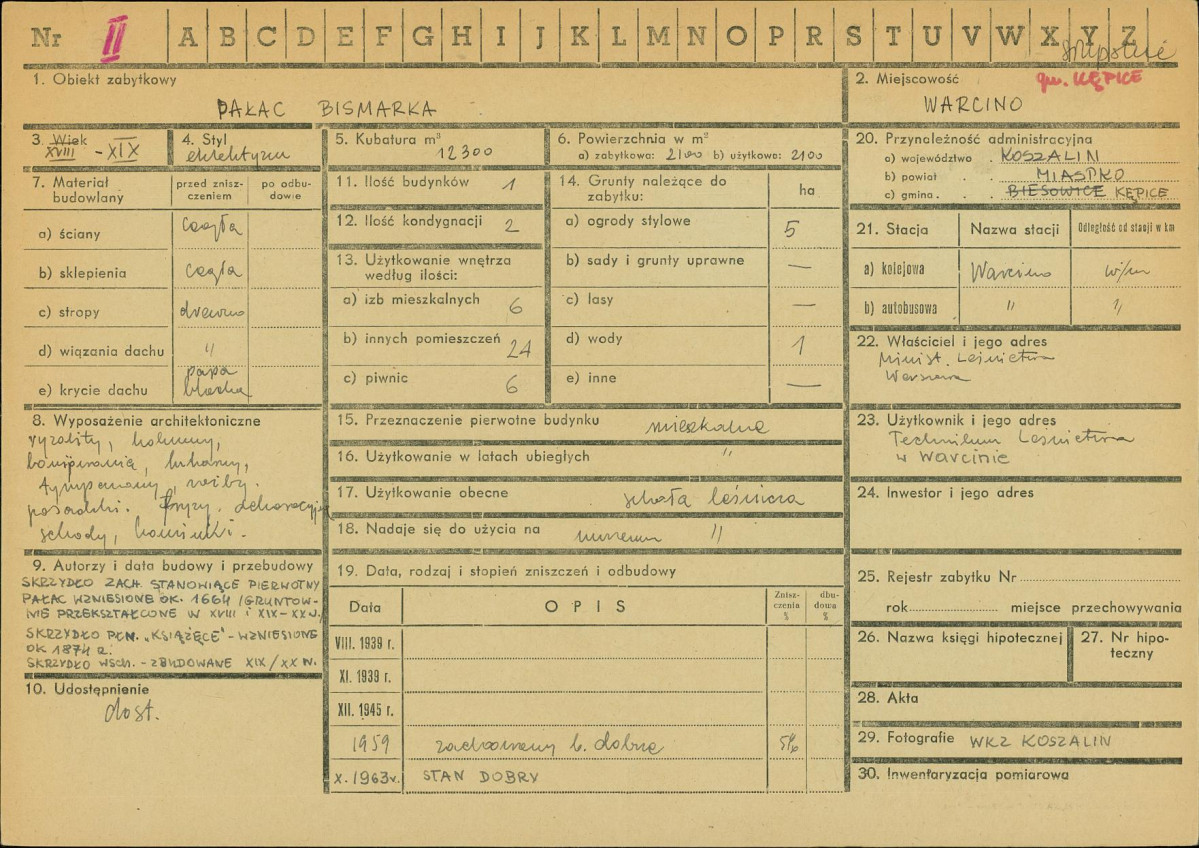 Nr II A B C D E F G H I J K L M N O P R S T U V W X Y Z
słupskie
1. Obiekt zabytkowy
PAŁAC BISMARKA
2. Miejscowość
gm. KĘPICE
WARCINO
3. Wiek
XVIII - XIX
4. Styl
eklektyzm
5. Kubatura m³
12300
6. Powierzchnia w m²
a) zabytkowa: 2100 b) użytkowa: 2100
20. Przynależność administracyjna
a) województwo . KOSZALIN
b) powiat . . MIASTKO
c) gmina . . BIESOWICE KĘPICE
7. Materiał budowlany
przed zniszczeniem
po odbudowie
a) ściany cegła
b) sklepienia cegła
c) stropy drewno
d) wiązania dachu "
e) krycie dachu papa
blacha
11. Ilość budynków 1
12. Ilość kondygnacji 2
13. Użytkowanie wnętrza
według ilości:
a) izb mieszkalnych 6
b) innych pomieszczeń 24
c) piwnic 6
14. Grunty należące do
zabytku:
ha
a) ogrody stylowe 5
b) sady i grunty uprawne —
c) lasy —
d) wody 1
e) inne —
21. Stacja
Nazwa stacji
Odległość od stacji w km
a) kolejowa Warcino w/m
b) autobusowa " "
22. Właściciel i jego adres
Minist. Leśnictwa
Warszawa
8. Wyposażenie architektoniczne
ryzality, kolumny,
tympanony, rzeźby.
posadzki. fryzy. dekoracyjne
schody, kominki.
15. Przeznaczenie pierwotne budynku mieszkalne
16. Użytkowanie w latach ubiegłych "
17. Użytkowanie obecne szkoła leśnicza
18. Nadaje się do użycia na muzeum "
23. Użytkownik i jego adres
Technikum Leśnictwa
w Warcinie
24. Inwestor i jego adres
9. Autorzy i data budowy i przebudowy
SKRZYDŁO ZACH. STANOWIĄCE PIERWOTNY
PAŁAC WZNIESIONE OK. 1664 /GRUNTOW-
NIE PRZEKSZTAŁCONE W XVIII i XIX-XX W.
SKRZYDŁO PŁN. „KSIĄŻĘCE" - WZNIESIONE
OK 1874 R.
SKRZYDŁO WSCH. - ZBUDOWANE XIX/XX W.
10. Udostępnienie
dost.
19. Data, rodzaj i stopień zniszczeń i odbudowy
Data
OPIS
Znisz-
czenia
%
dbu-
dowa
%
VIII. 1939 r.
XI. 1939 r.
XII. 1945 r.
1959 zachowany b. dobrze 5%
X. 1963 r. STAN DOBRY
25. Rejestr zabytku Nr
rok miejsce przechowywania
26. Nazwa księgi hipotecznej
27. Nr hipo-
teczny
28. Akta
29. Fotografie WKZ KOSZALIN
30. Inwentaryzacja pomiarowa